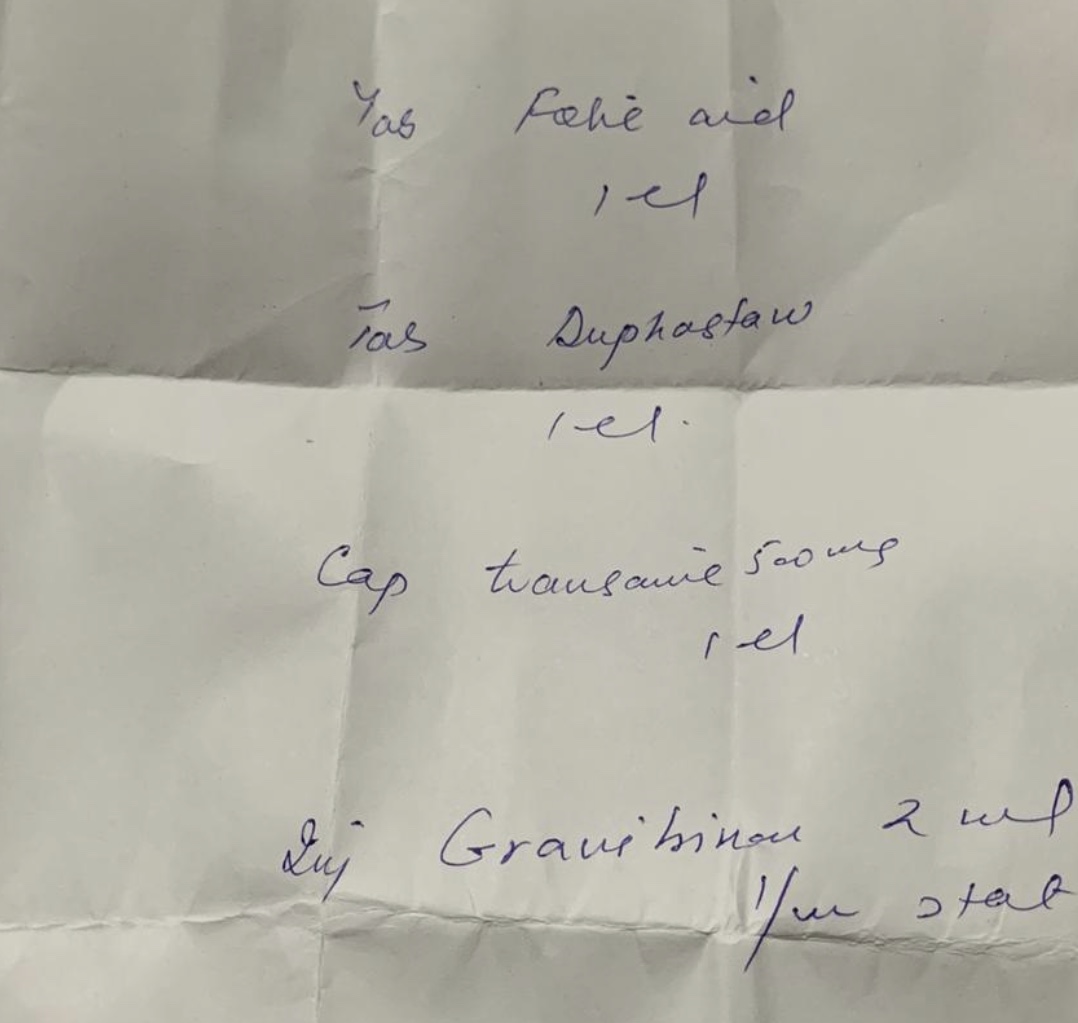 Tab Folic acid
1 el
Tab Duphaston
1 el.
Cap transamic 500 mg
1 el
Inj Gravibinan 2 ml
1/m stat